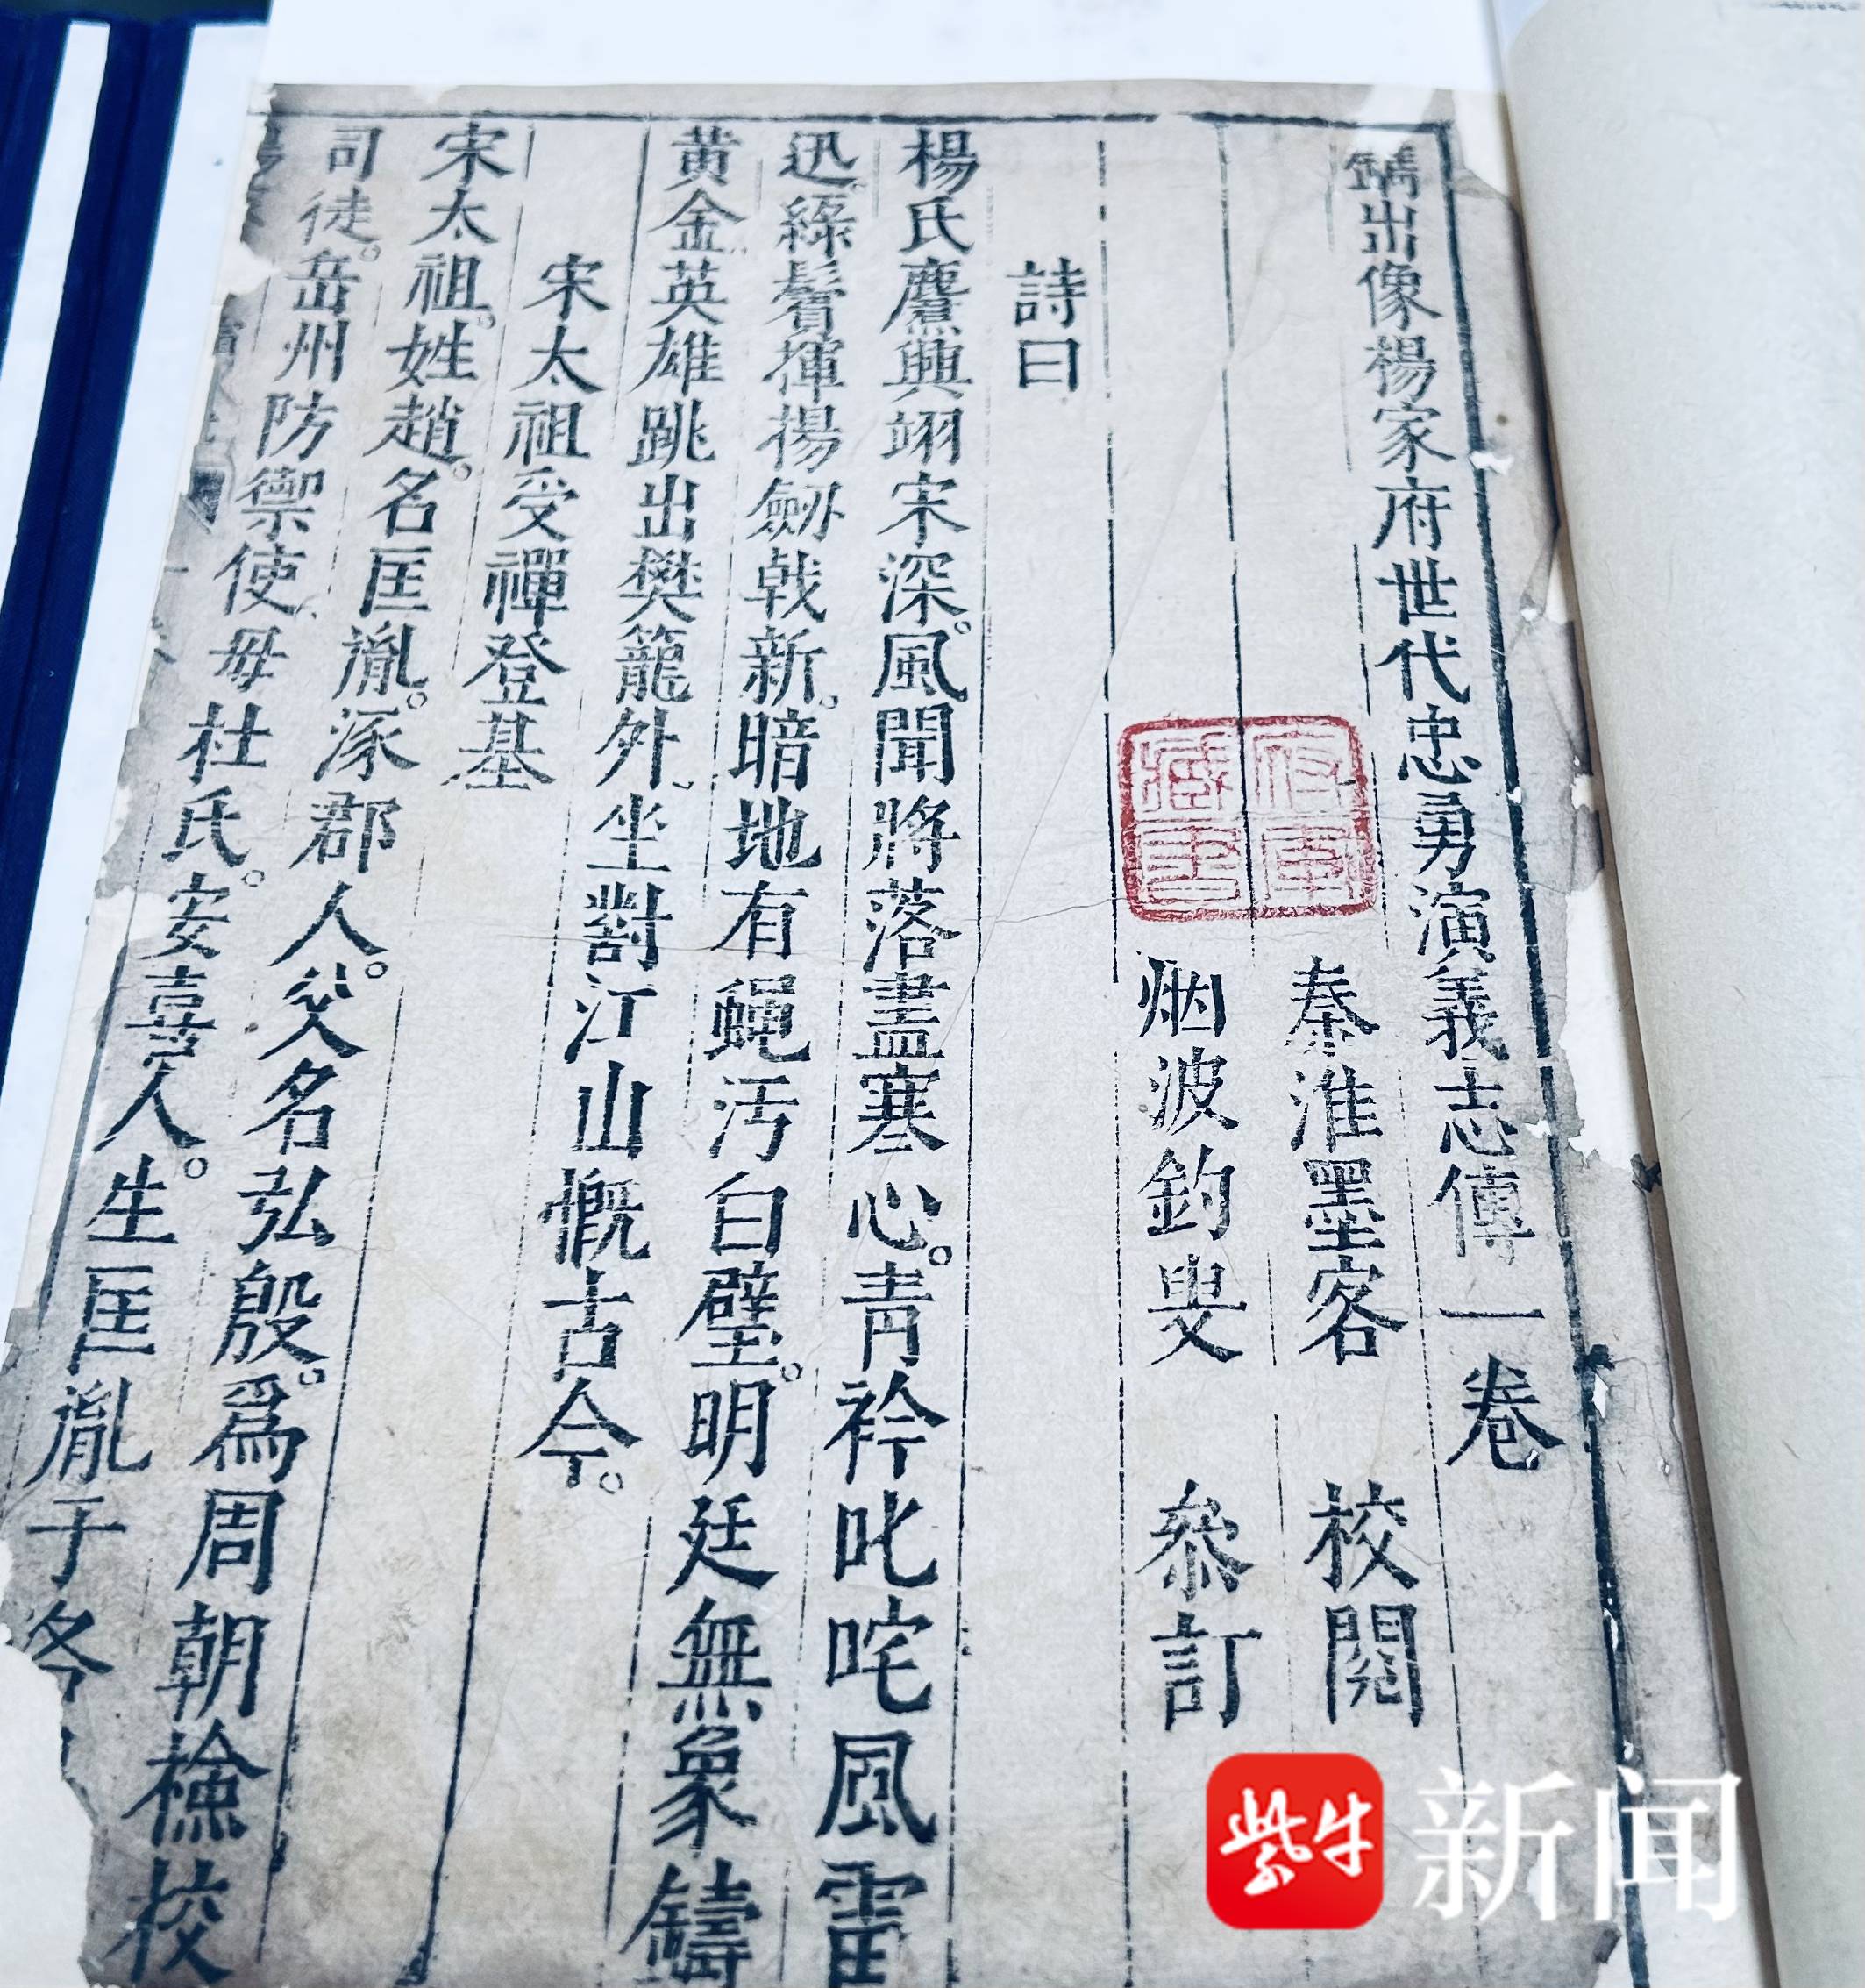 鐫出像楊家府世代忠勇演義志傳一卷
秦淮墨客 校閱
烟波釣叟 叅訂
詩曰
楊氏麃興翊宋深。風聞將落盡寒心。青衿叱咤風雷
迅。綠鬢揮揚劒戟新。暗地有蠅汚白璧。明廷無象鑄
黄金。英雄跳出樊籠外、坐對江山慨古今。
宋太祖受禪登基
宋太祖。姓趙。名匡胤。涿郡人。父名弘殷。爲周朝檢校
司徒。岳州防禦使、母杜氏。安喜人。生匡胤于洛
紫牛
新闻